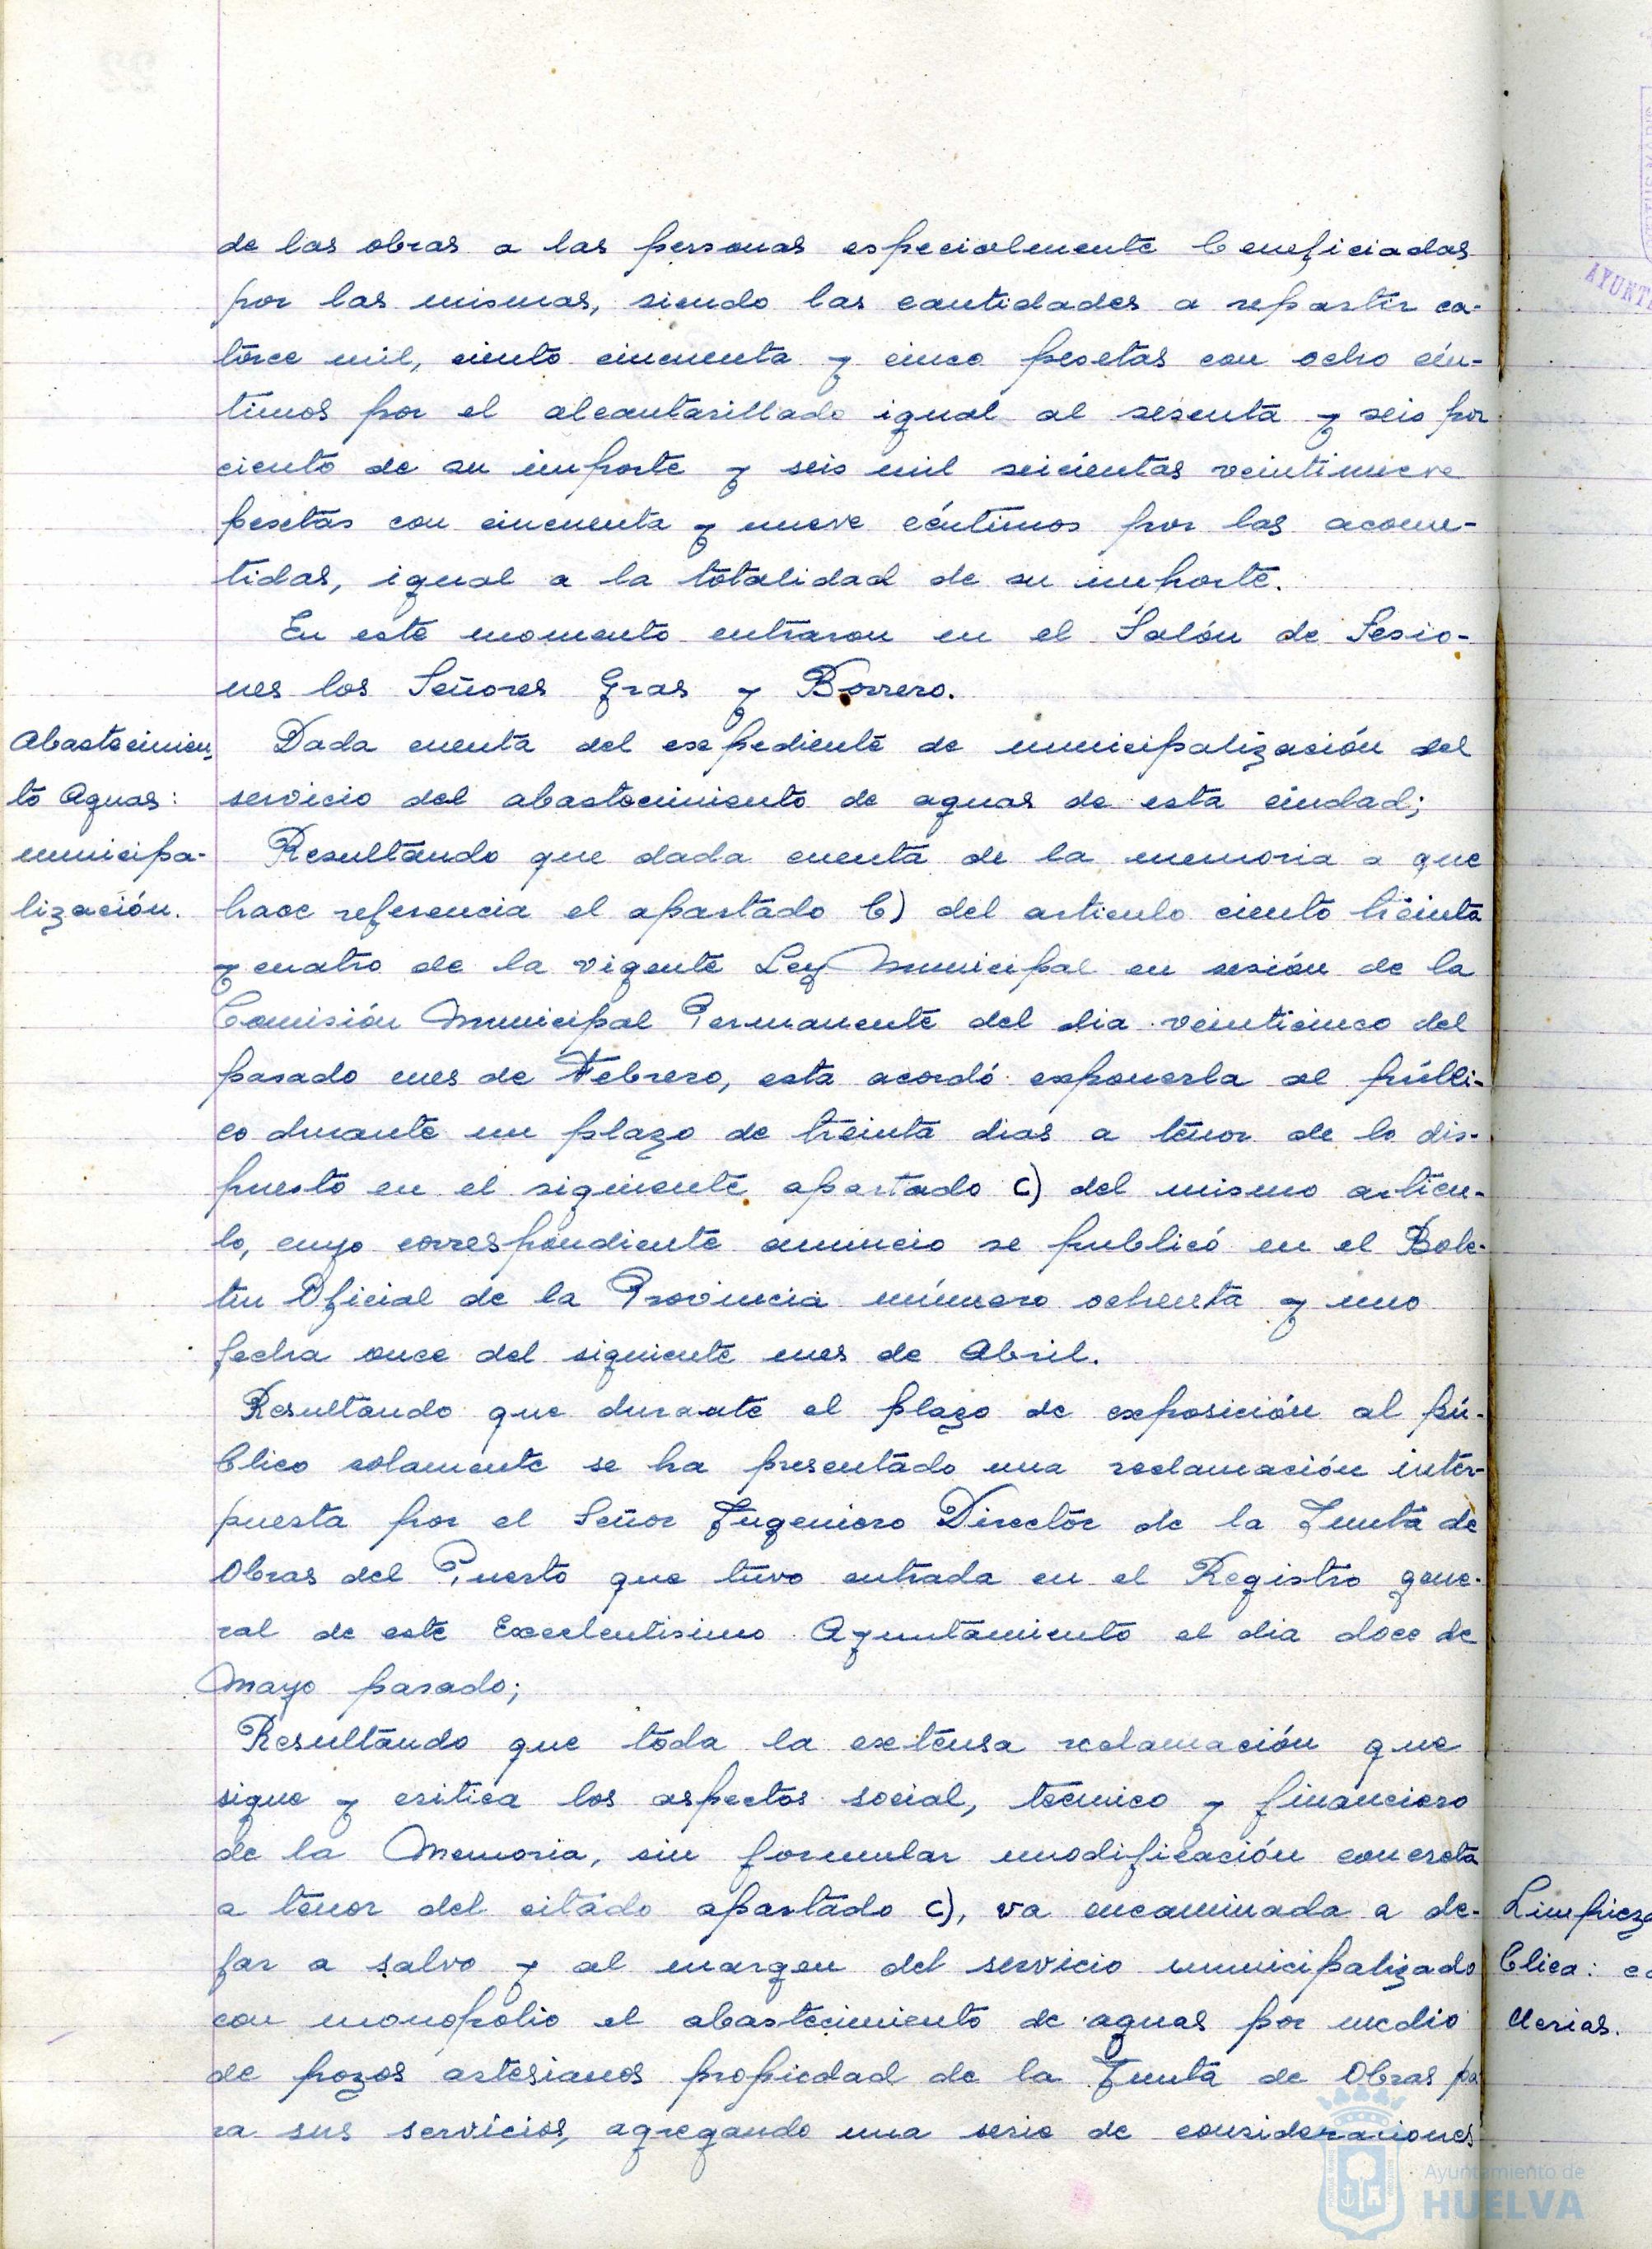 de las obras a las personas especialmente beneficiadas
por las mismas, siendo las cantidades a repartir ca-
torce mil, ciento cincuenta y cinco pesetas con ocho cén-
timos por el alcantarillado igual al sesenta y seis por
ciento de su importe y seis mil seicientas veintinueve
pesetas con cincuenta y nueve céntimos por las acome-
tidas, igual a la totalidad de su importe.
En este momento entraron en el Salón de Sesio-
nes los Señores Gras y Borrero.
Abastecimien-
to Aguas:
municipa-
lización.
Dada cuenta del expediente de municipalización del
servicio del abastecimiento de aguas de esta ciudad;
Resultando que dada cuenta de la memoria a que
hace referencia el apartado b) del articulo ciento treinta
y cuatro de la vigente Ley Municipal en sesión de la
Comisión Municipal Permanente del dia veinticinco del
pasado mes de Febrero, esta acordó exponerla al públi-
co durante un plazo de treinta dias a tenor de lo dis-
puesto en el siguiente apartado c) del mismo artícu-
lo, cuyo correspondiente anuncio se publicó en el Bole-
tin Oficial de la Provincia número ochenta y uno
fecha once del siguiente mes de Abril.
Resultando que durante el plazo de exposición al pú-
blico solamente se ha presentado una reclamación inter-
puesta por el Señor Ingeniero Director de la Junta de
Obras del Puerto que tuvo entrada en el Registro gene-
ral de este Excelentisimo Ayuntamiento el dia doce de
Mayo pasado;
Resultando que toda la extensa reclamación que
sigue y critica los aspectos social, tecnico y financiero
de la Memoria, sin formular modificación concreta
a tenor del citado apartado c), va encaminada a de-
jar a salvo y al margen del servicio municipalizado
con monopolio el abastecimiento de aguas por medio
de pozos artesianos propiedad de la Junta de Obras pa
ra sus servicios, agregando una serie de consideraciones
Limpieza
blica: ca
llerias.
AYUNT
Ayuntamiento de
HUELVA